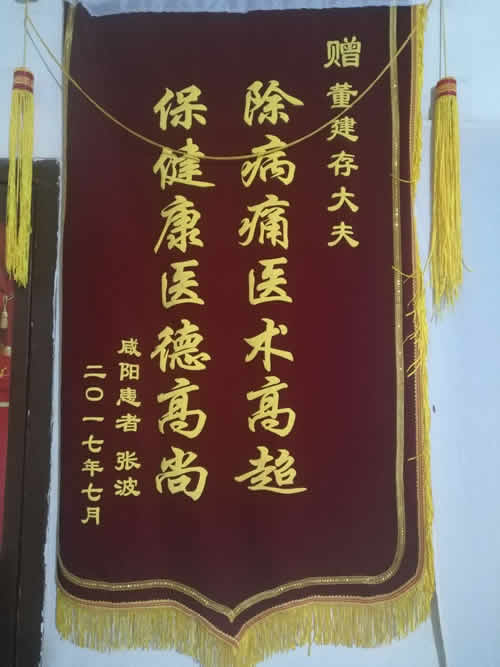 赠 董建存大夫
除病痛医术高超
保健康医德高尚
咸阳患者 张波
二〇一七年七月